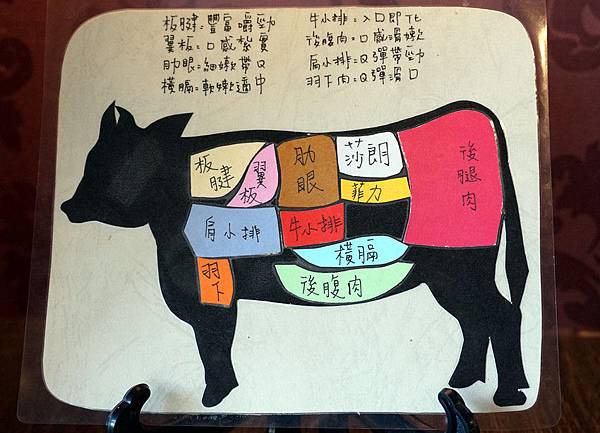 板腱=豐富嚼勁
翼板=口感紮實
肋眼=細嫩帶Q
橫膈=軟嫩適中
牛小排=入口即化
後腹肉=口感滑嫩
肩小排=Q彈帶勁
羽下肉=Q彈滑口
板腱
翼板
肋眼
莎朗
菲力
後腿肉
肩小排
牛小排
橫膈
羽下
後腹肉